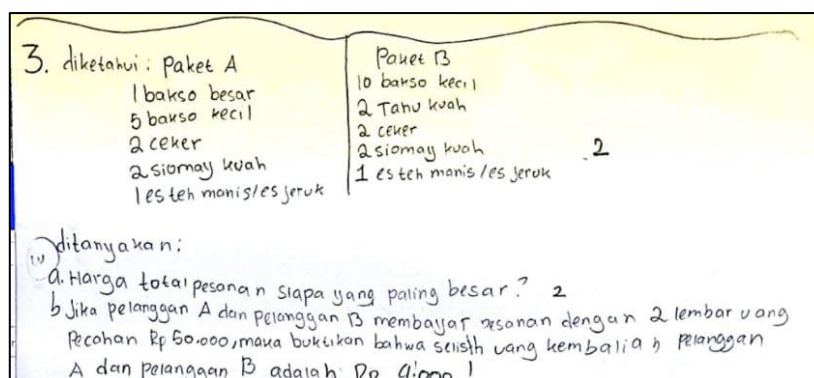 3. diketahui : Paket A
1 bakso besar
5 bakso kecil
2 ceker
2 siomay kuah
1 es teh manis/es jeruk
Paket B
10 bakso kecil
2 Tahu kuah
2 ceker
2 siomay kuah
1 es teh manis/es jeruk
2
ditanyakan :
a. Harga total pesanan siapa yang paling besar? 2
b Jika pelanggan A dan pelanggan B membayar pesanan dengan 2 lembar uang
Pecahan Rp 50.000, maka buktikan bahwa selisih uang kembalian pelanggan
A dan pelanggan B adalah Rp 4.000 !